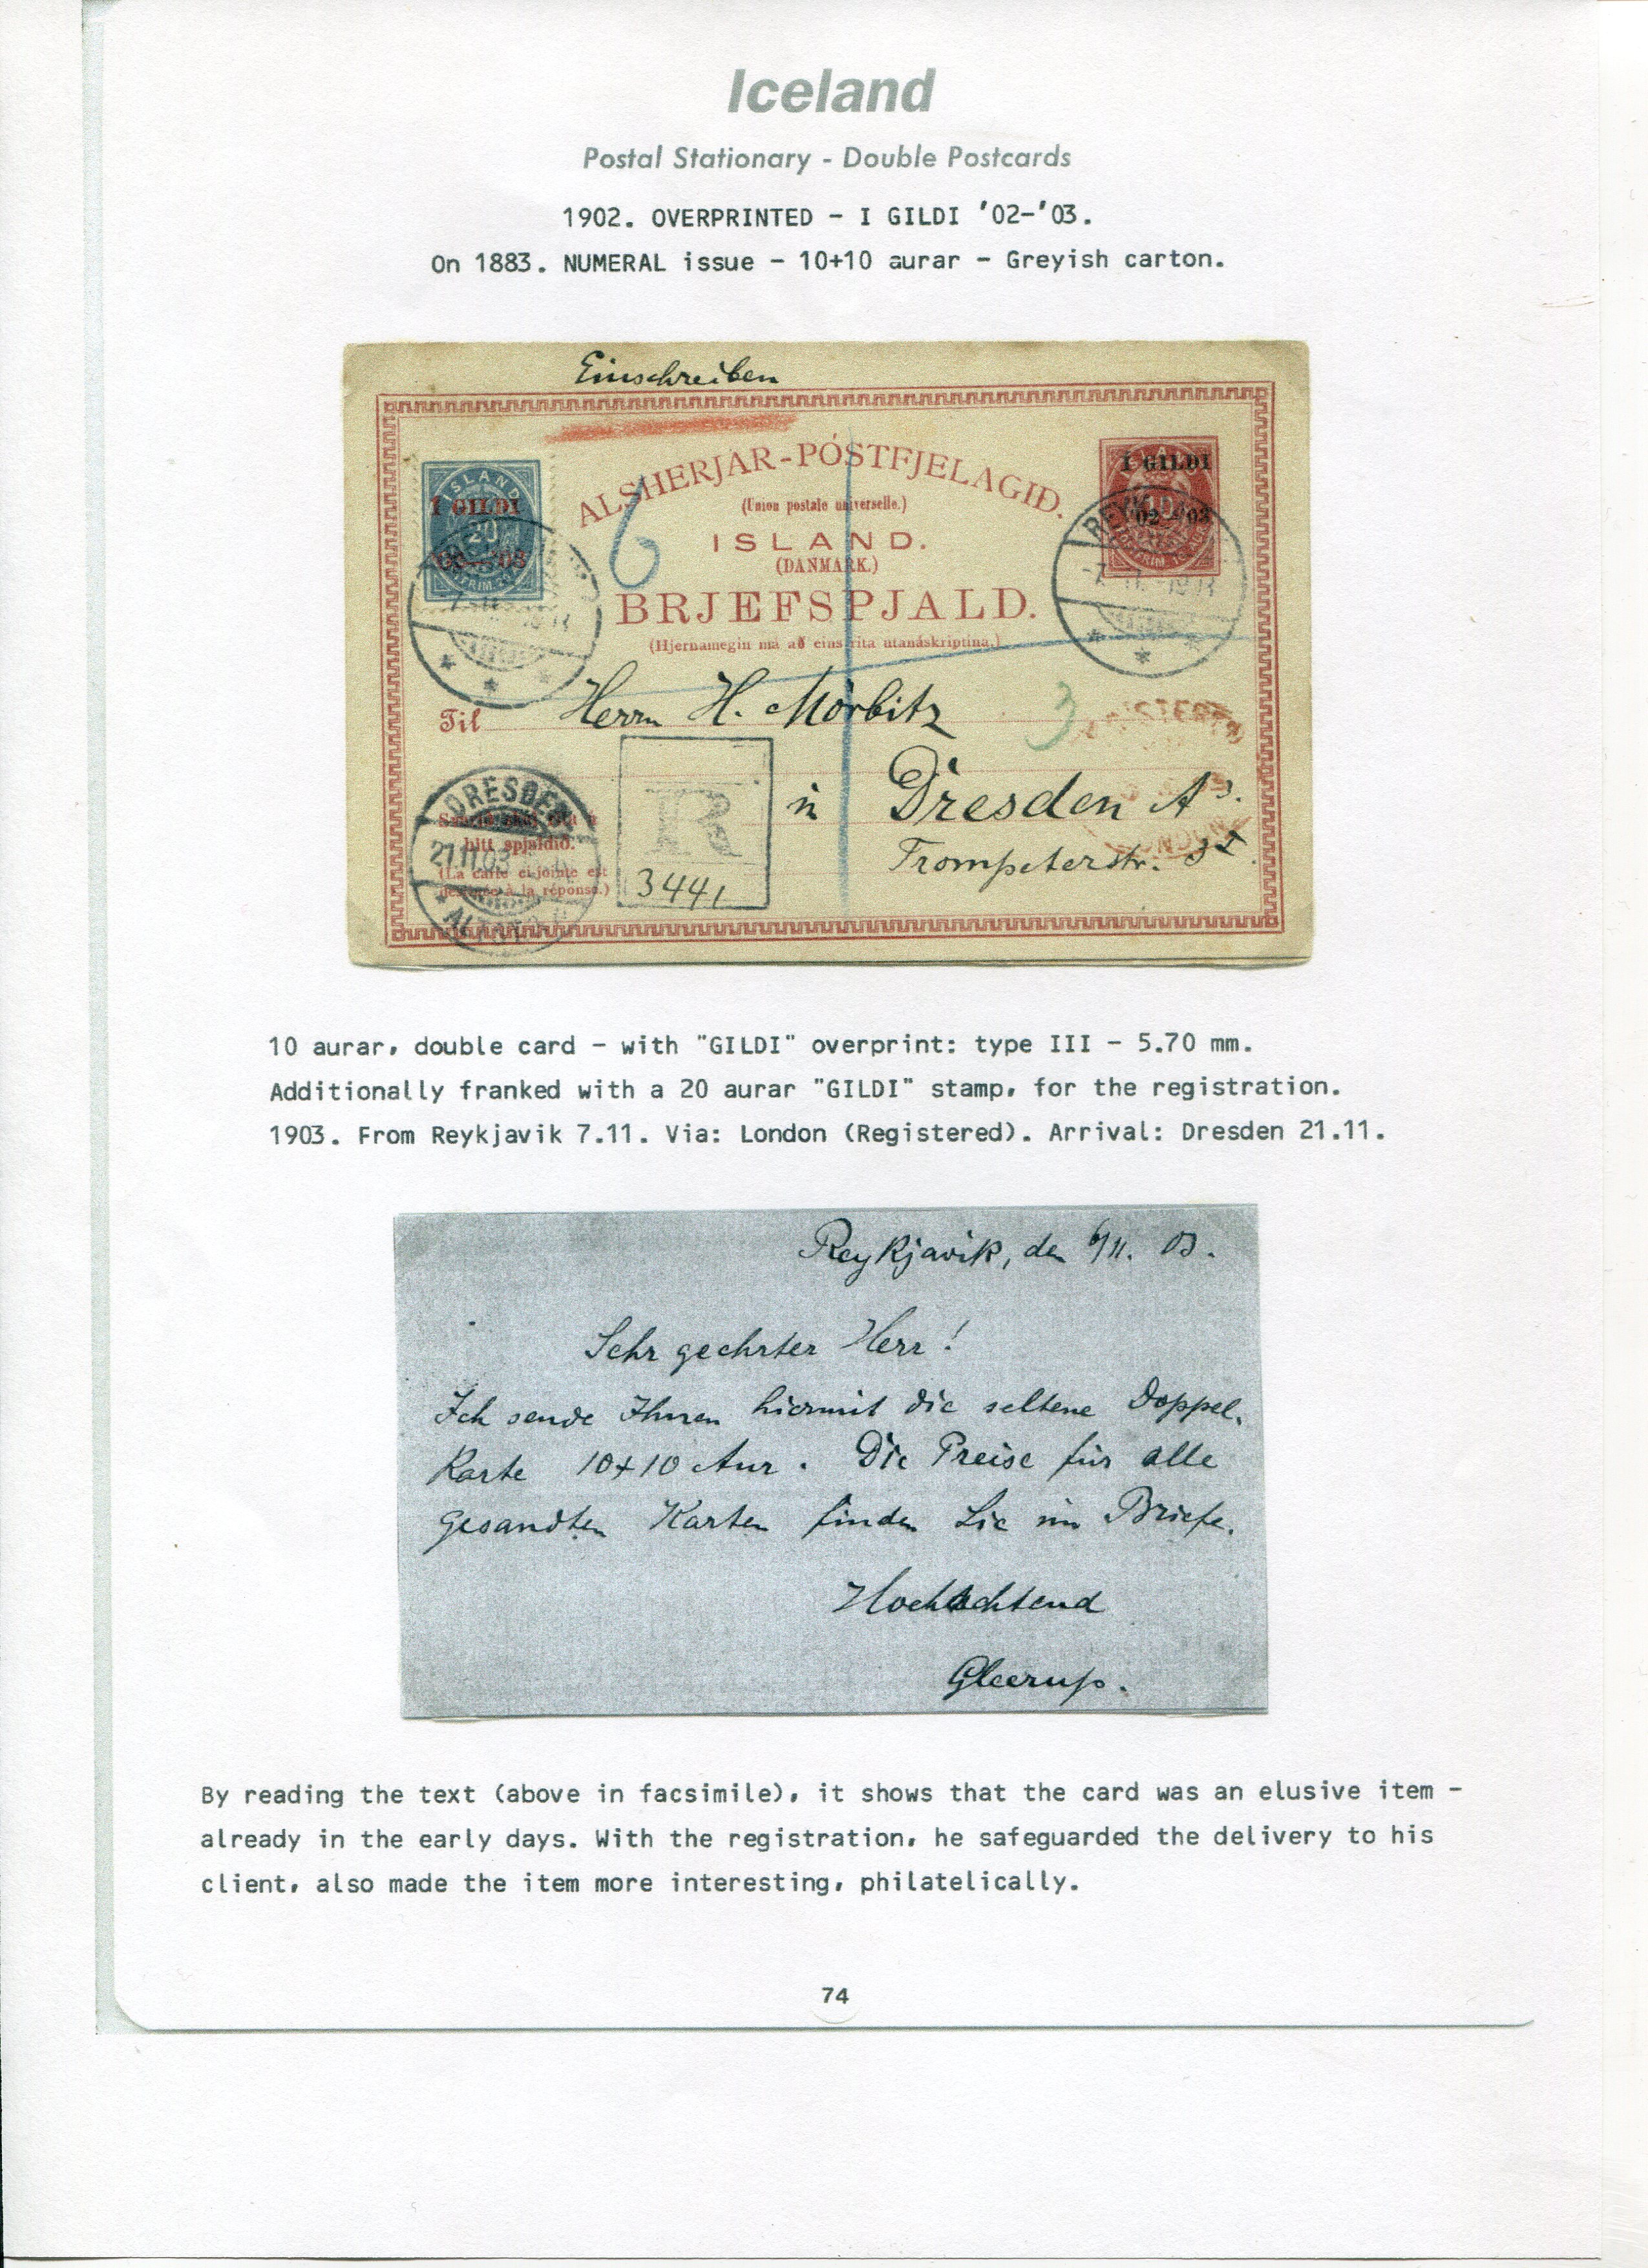 Iceland
Postal Stationary - Double Postcards
1902. OVERPRINTED - I GILDI '02-'03.
On 1883. NUMERAL issue - 10+10 aurar - Greyish carton.
Einschreiben
ALSHERJAR-PÓSTFJELAGIÐ.
(Union postale universelle.)
ISLAND.
(DANMARK.)
BRJEFSPJALD.
(Hjernamegin má að eins rita utanáskriptina.)
ISLAND
Í GILDI
20
'02—'03
Í GILDI
10
'02—'03
6
3
Til Herrn H. Mörbitz
in Dresden A
Trompeterstr.
R
3441
DRESDEN
21.11.03
hitt spjaldið.
(La carte ci-jointe est
destinée à la réponse.)
LONDON
10 aurar, double card - with "GILDI" overprint: type III - 5.70 mm.
Additionally franked with a 20 aurar "GILDI" stamp, for the registration.
1903. From Reykjavik 7.11. Via: London (Registered). Arrival: Dresden 21.11.
Reykjavik, den 6/11. 03.
Sehr geehrter Herr!
Ich sende Ihnen hiermit die seltene Doppel-
Karte 10+10 Aur. Die Preise für alle
gesandten Karten finden Sie im Briefe.
Hochachtend
Gleerup.
By reading the text (above in facsimile), it shows that the card was an elusive item -
already in the early days. With the registration, he safeguarded the delivery to his
client, also made the item more interesting, philatelically.
74